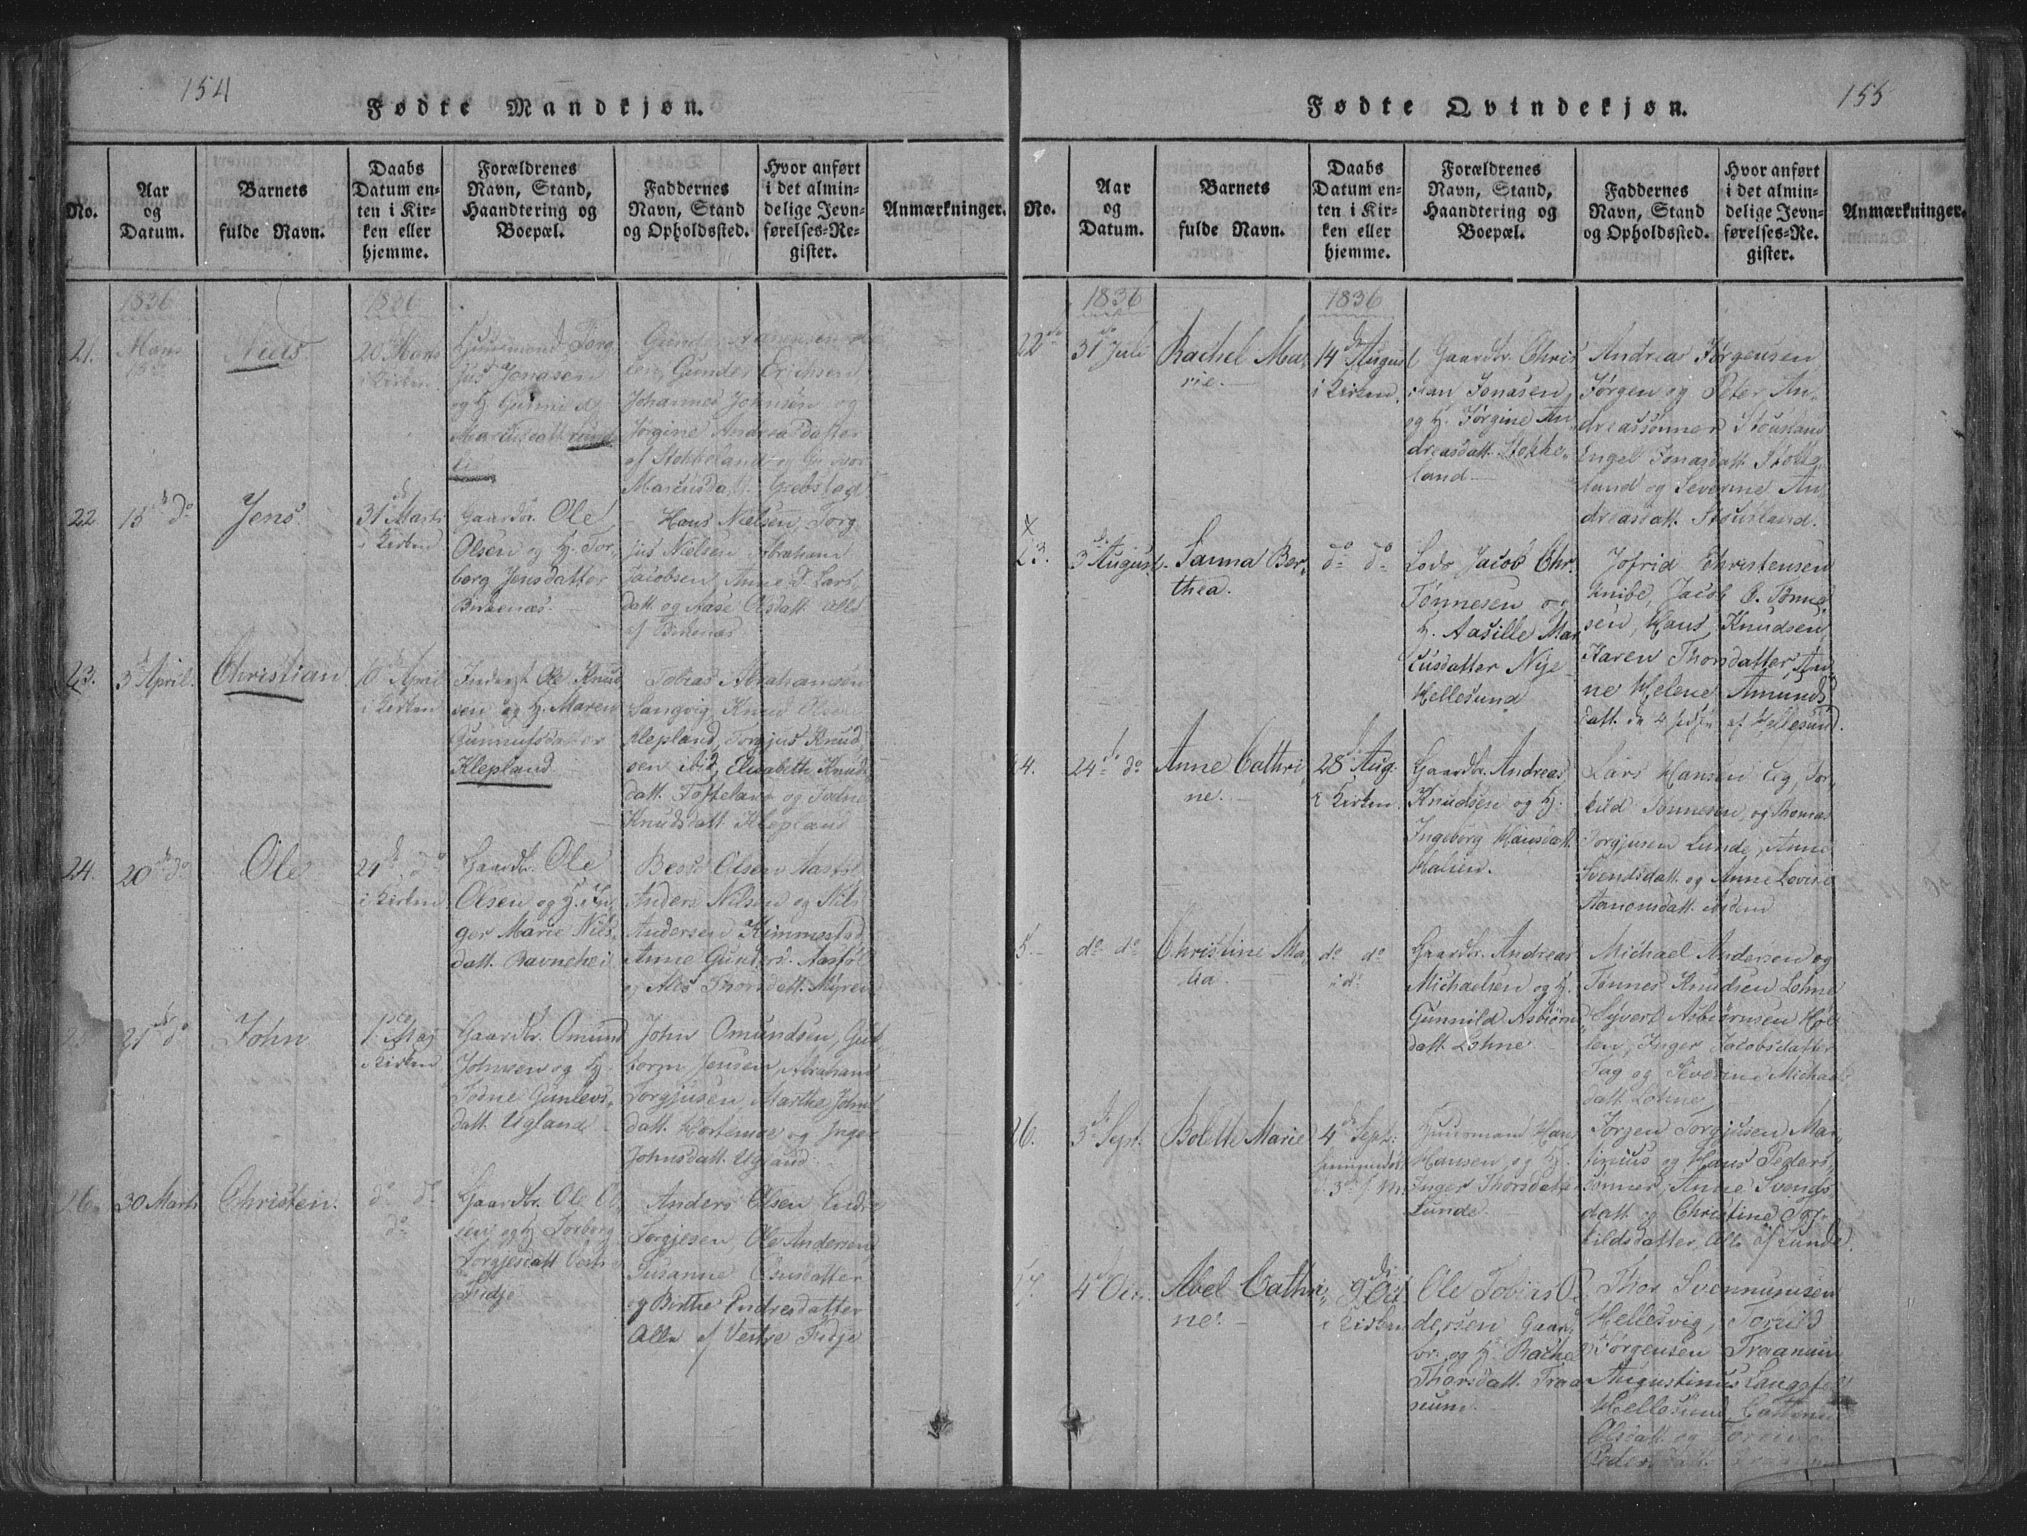 154
Fødte Mandkjøn.
No.
Aar
og
Datum.
Barnets
fulde Navn.
Daabs
Datum en-
ten i Kir-
ken eller
hjemme.
Forældrenes
Navn, Stand,
Haandtering og
Boepæl.
Faddernes
Navn, Stand
og Opholdssted.
Hvor anført
i det almin-
delige Jevn-
førelses-Re-
gister.
Anmærkninger.
1836
1836
21.
Mars
Niels
20 Mars
i Kirken
Huusmand Torg
jus Jonasen
og H. Gunni
Gunder
len, Gunder Erichsen
Johannes Johnsen og
Jorgine Andreasdatter
af Stokkeland og
Marcusdatt. Grebstad
22.
15 do
Jens.
31 Marts
i Kirken
Gaardbr. Ole
Olsen og H. Tor
borg Jensdatter
Birkenæs.
Hans Nielsen, Torg
jus Nielsen Abraham
Jacobsen, Anne T. Lars
datt. og Aase Olsdatt. Alle
af Birkenæs
23.
3 April.
Christian
10 April
i Kirken
Inderst Ole Knud
sen og H. Maren
Gunnufsdatter
Klepland
Tobias Abrahamsen
Langvig, Knud Olsen
Klepland, Torgjus Knud
sen ibid, Elisabeth Knuds
datt. Tofteland og Todne
Knudsdatt. Klepland
24.
20 do
Ole
24 do
i Kirken
Gaardbr. Ole
Olsen og H. In
ger Marie Niels
datt. Ravnehei
Bess Olsen Aasføl
Anders Nilsen og Nils
Andersen Kimmestad
Anne Gunders. Aasføl
og Alis Thorsdatt. Myren
21 do
John
1 Maj
i Kirken
Gaardbr. Omund
Johnsen og H.
Todne Gunlevs
datt. Ugland
John Omundsen, Gut
torm Jensen, Abraham
Torgjusen, Marthe Johns
datt. Hortemoe og Inger
Johnsdatt. Ugland
26.
30 Marts
Christen.
do do
do
Gaardbr. Ole Ol
sen og H. Torborg
Torgjesdatt Vestr
Fidje
Anders Olsen Endre
Torgjesen, Ole Andersen,
Susanne Osusdatter
og Birthe Endresdatter
Alle af Vestre Fidje
Fødte Qvindekjøn.
155
No.
Aar
og
Datum.
Barnets
fulde Navn.
Daabs
Datum en-
ten i Kir-
ken eller
hjemme.
Forældrenes
Navn, Stand,
Haandtering og
Boepæl.
Faddernes
Navn, Stand
og Opholdssted.
Hvor anført
i det almin-
delige Jevn-
førelses-Re-
gister.
Anmærkninger.
1836
1836
22
31 Juli
Rachel Ma-
rie.
14 August
i Kirken
Gaardbr. Chris
tian Jonasen,
og H. Jørgine An
dreasdatt. Stokke-
land
Andreas Jørgensen
Jørgen og Peter An-
dreassønner Stousland
Engel Jonasdatt. Stokke
land og Severine An
dreasdatt. Stousland.
23.
3 August
Sanna Ber
thea.
do do
Lods Jacob Chr.
Tønnesen og
H. Aasille Mar
cusdatter Nye
Hellesund
Jofrid Christensen
Knibe, Jacob C. Tønne
sen, Hans Knudsen,
Karen Thorsdatter, An
ne Helene Amunds
datt. de 4 sidste af Hellesund.
24 do
Anne Cathri
ne.
28 Aug.
i Kirken
Gaardbr. Andreas
Knudsen og H.
Ingeborg Hansdatt.
Halsen.
Lars Hansen Eg, Tor
kild Tønnesen, og Thomas
Torgjusen Lunde, Anne
Svendsdatt. og Anne Lovise
Aanonsdatt. ibidem
do do
Christine Ma
lia.
do do
i do
Gaardbr. Andreas
Michaelsen og H.
Gunnild Asbiørns
datt. Lohne
Michael Andersen og
Tønnes Knudsen Lohne
Syvert Asbiørnsen Hol
len, Inger Jacobsdatter
Tag og Severine Michaels
datt. Lohne
26.
3 Sept.
Bolette Marie
4 Sept.
Huusmand Hans
Hansen og H.
Inger Thorsdatt
Lunde
Jørgen Torgjusen Mar
tinius og Hans Peders
sønner, Anne Svends
datt. og Christine
kildsdatter, Alle af Lunde.
4 Oct.
Abel Cathri
ne.
9 Oct
i Kirken
Ole Tobias P
dersen Gaard
br. og H. Rachel
Thorsdatt. Traa
neum
Thor Svennumsen
Hellesvig, Torkild
Jørgensen Traanum
Augustinus Langefeldt
Hellesund
Olsdatt. og
Pedersdatt. Traanum